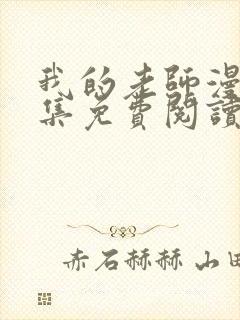 我的老師漫
集免費閱讀
赤石赫赫 山田